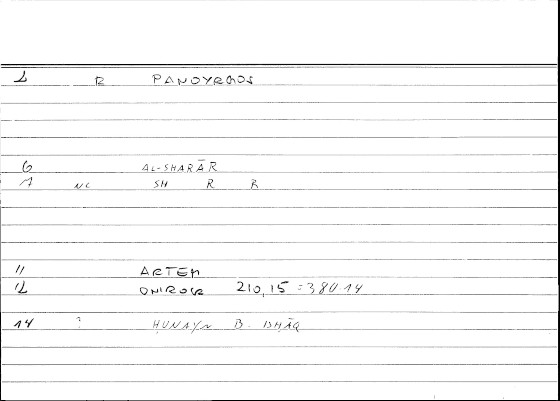 2 R PANOYRGOS
6 AL-SHARĀR
7 NC SH R R
11 ARTEM
12 ONIROCR 210,15 = 380.14
14 ? ḤUNAYN B. ISḤĀQ